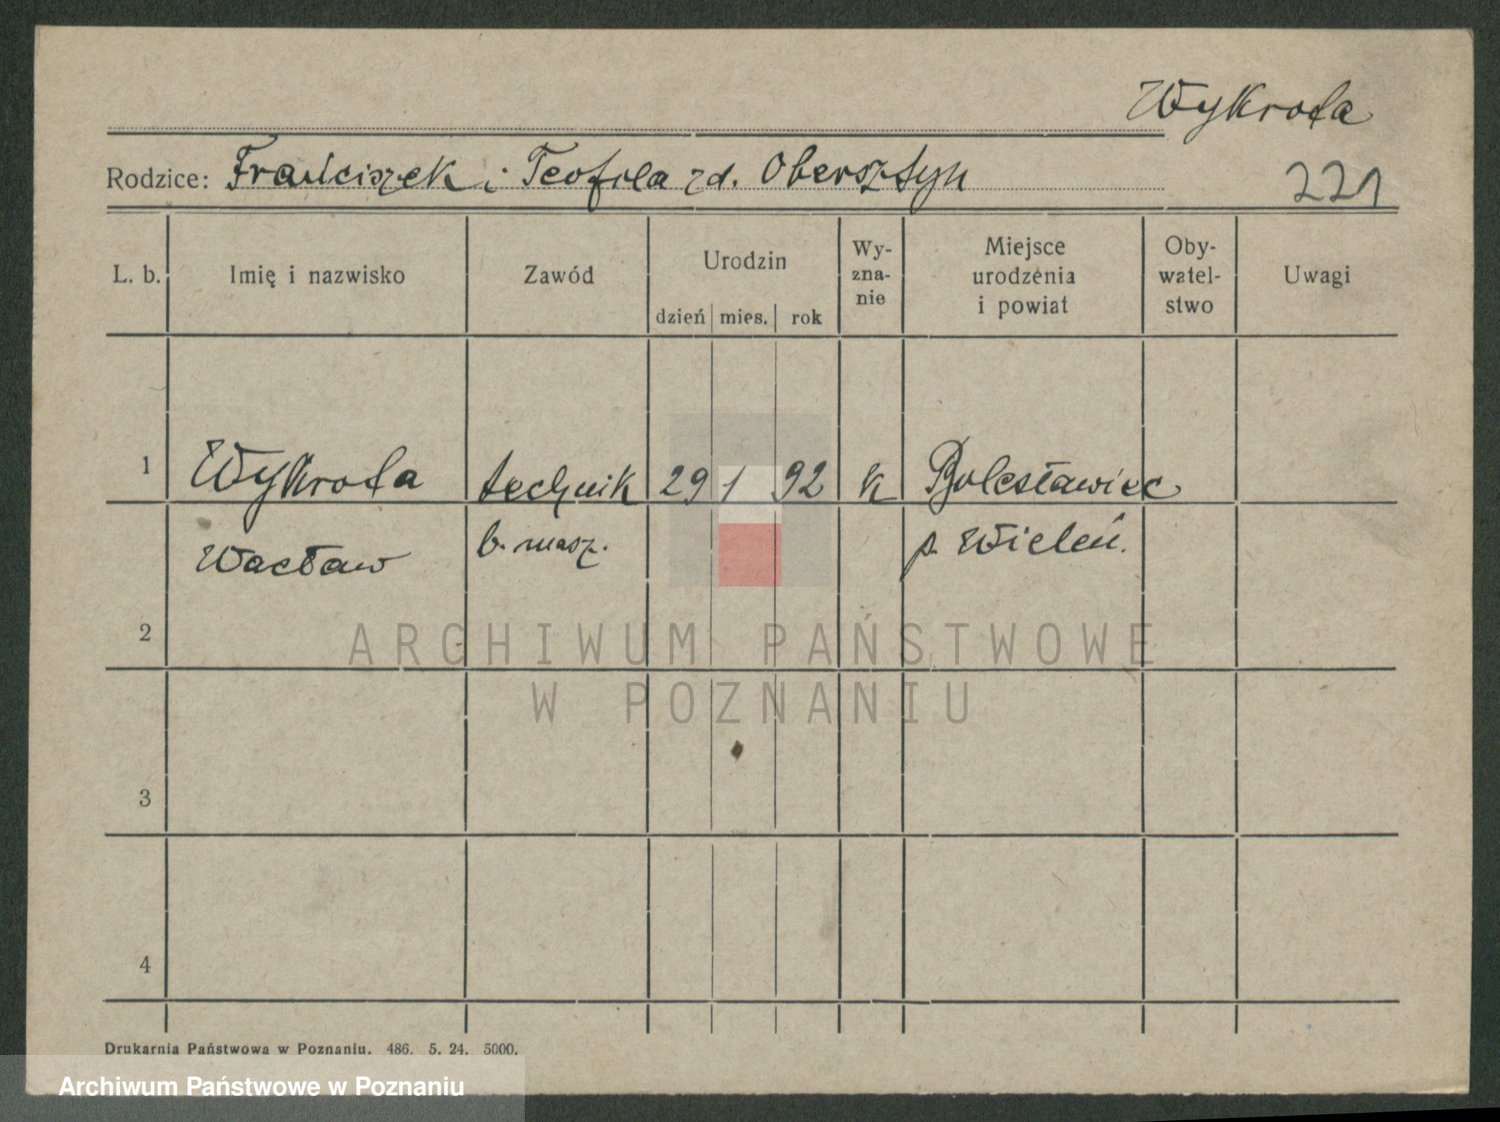 Wykrota
Rodzice: Franciszek i Teofila zd. Obersztyn
221
L. b. Imię i nazwisko Zawód Urodzin dzień mies. rok Wy-
zna-
nie Miejsce
urodzenia
i powiat Oby-
watel-
stwo Uwagi
1 Wykrota technik 29 1 92 k Bolesławiec
Wacław b. masz. p. Wieleń.
2
ARCHIWUM PAŃSTWOWE
W POZNANIU
3
4
Drukarnia Państwowa w Poznaniu. 486. 5. 24. 5000.
Archiwum Państwowe w Poznaniu